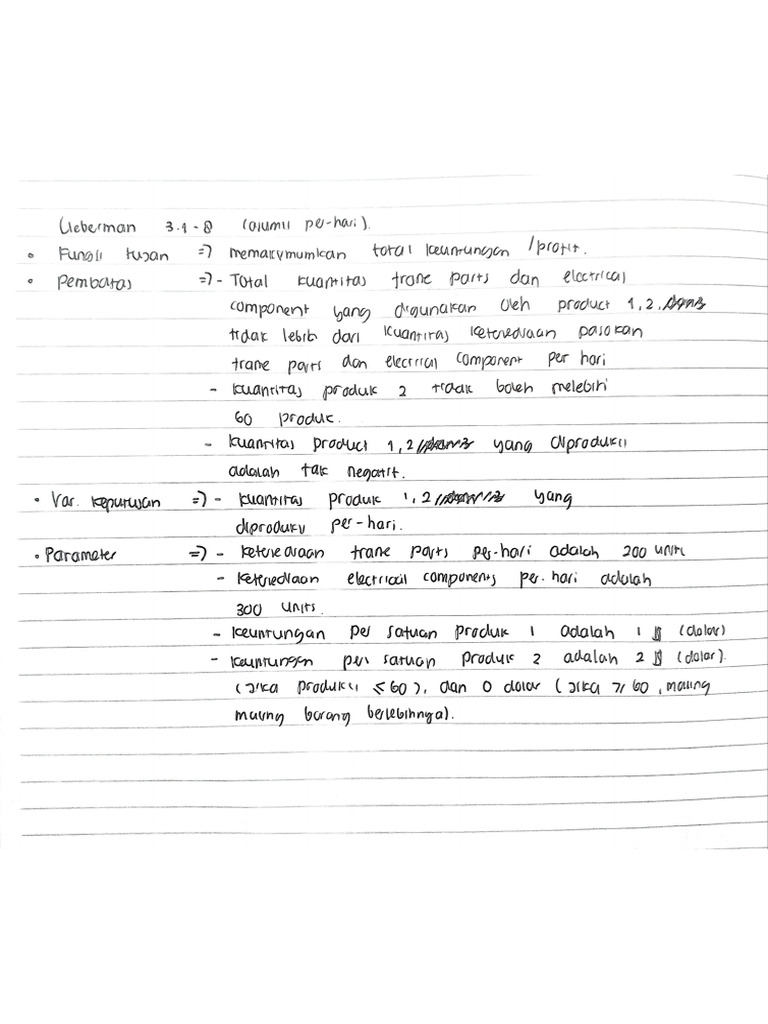 Lieberman 3.1-8 (asumsi per-hari).
• Fungsi tujuan => memaksymumkan total keuntungan /profit.
• Pembatas => - Total kuantitas frame parts dan electrical
component yang digunakan oleh product 1,2,
tidak lebih dari kuantitas ketersediaan pasokan
frame parts dan electrical component per hari
- kuantitas produk 2 tidak boleh melebihi
60 produk.
- kuantitas product 1,2 yang diproduksi
adalah tak negatif.
• Var. keputusan => - kuantitas produk 1,2 yang
diproduksi per-hari.
• Parameter => - ketersediaan frame parts per-hari adalah 200 units
- ketersediaan electrical components per-hari adalah
300 units.
- keuntungan per satuan produk 1 adalah 1 $ (dolar)
- keuntungan per satuan produk 2 adalah 2 $ (dolar).
(jika produksi ≤ 60), dan 0 dolar (jika ≥ 60, masing
masing barang berlebihnya).